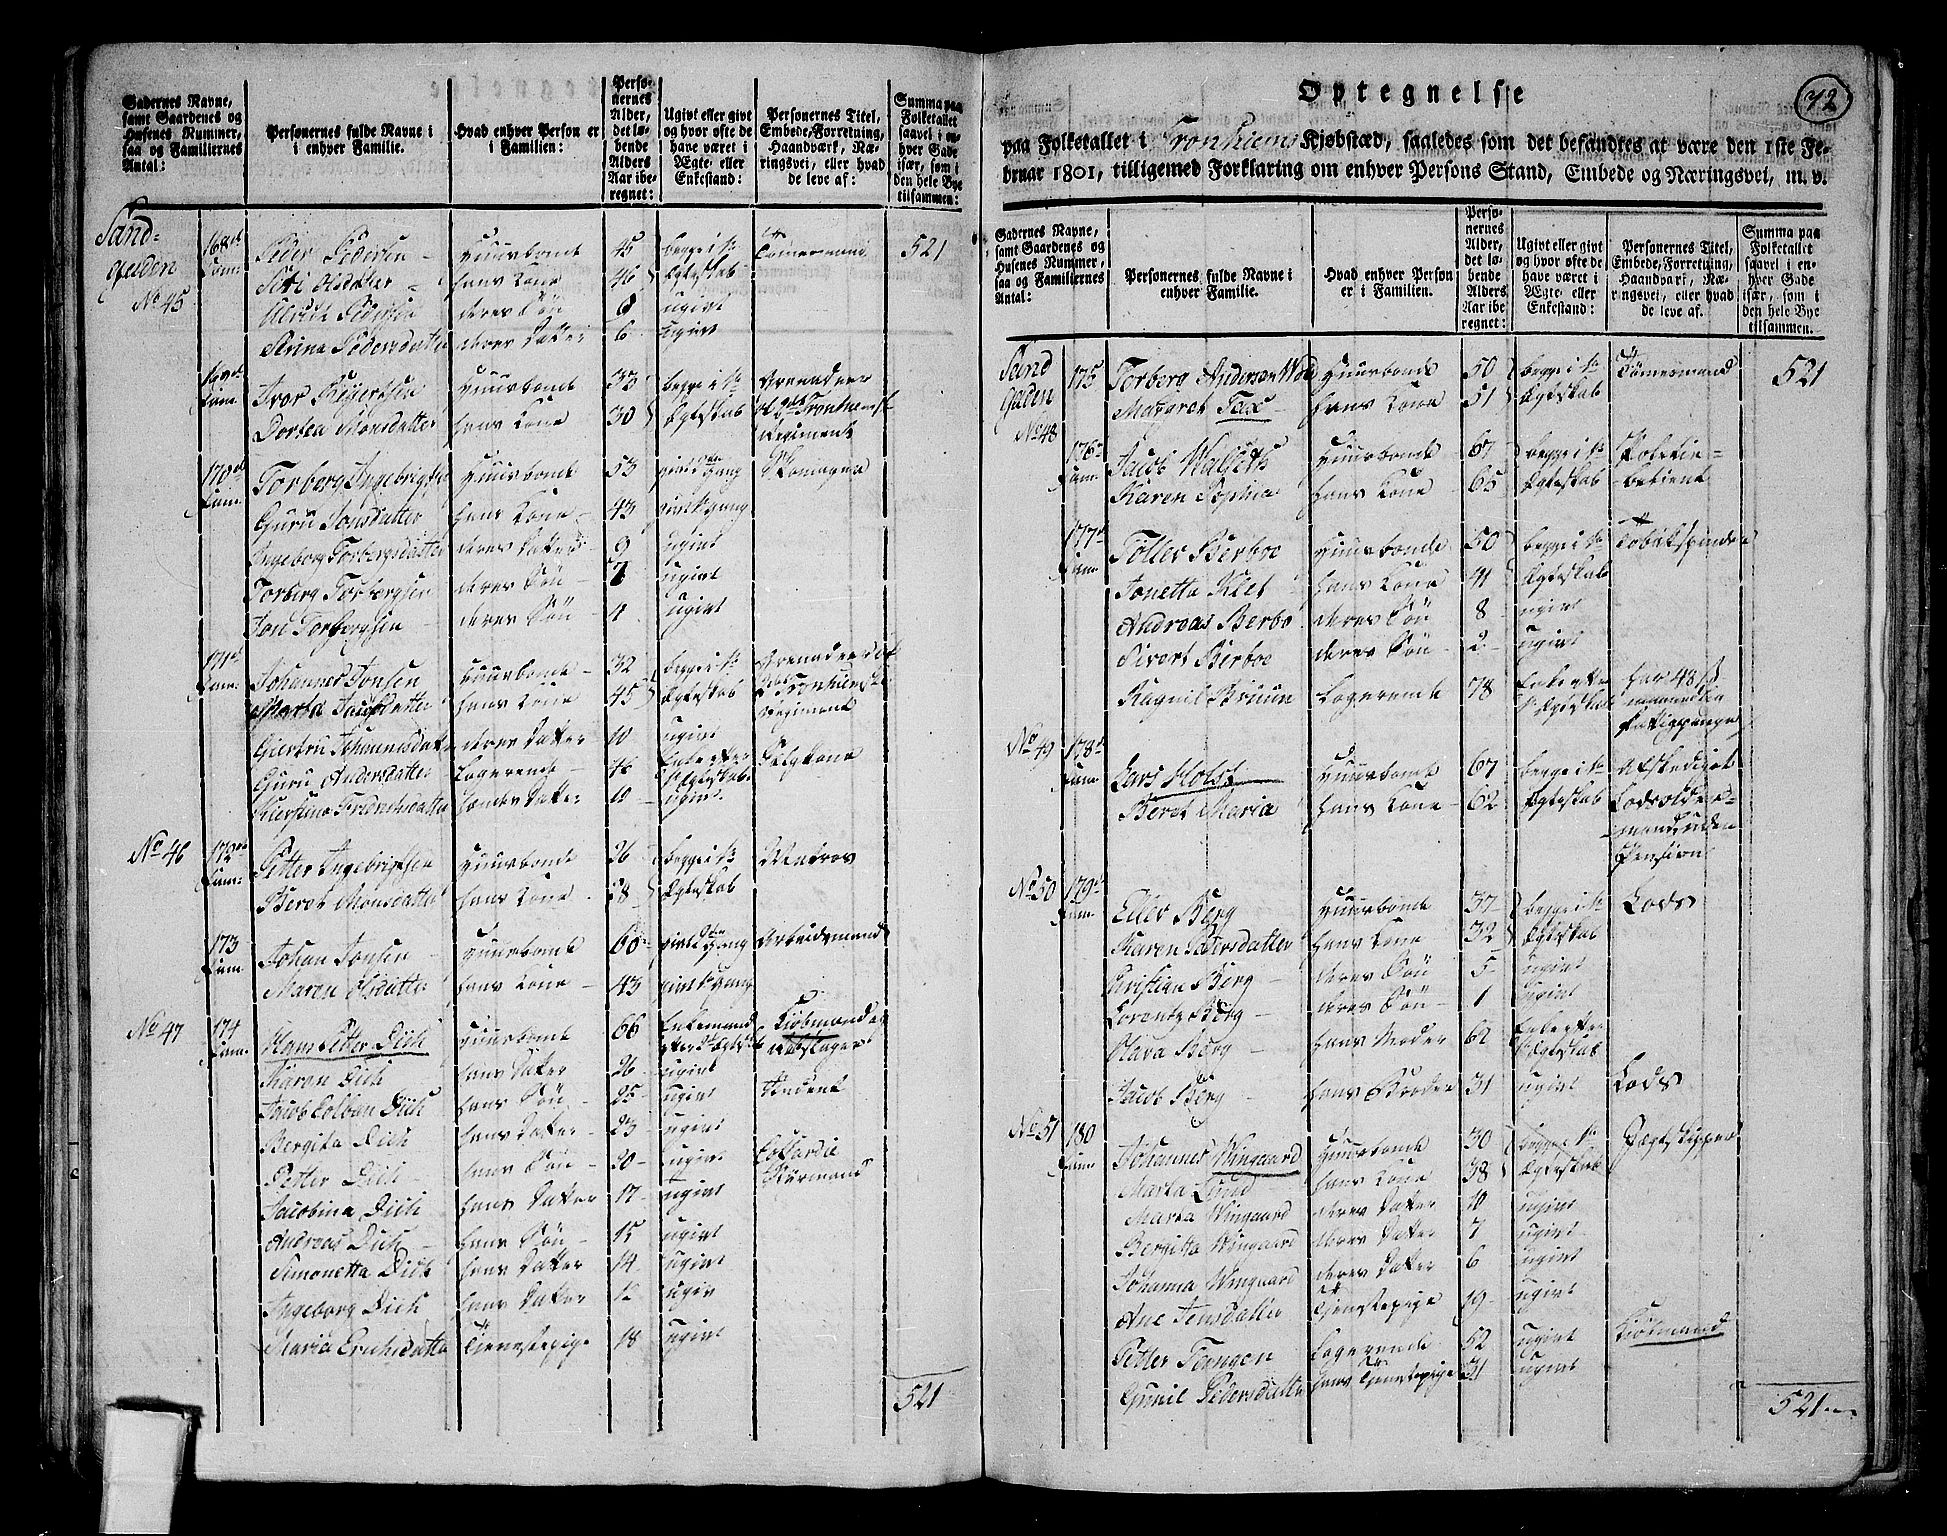 Gadernes Navne, samt Gaardenes og Husenes Nummer, saa og Familiernes Antal:
Personernes fulde Navne i enhver Familie.
Hvad enhver Person er i Familien:
Personernes Alder, det løbende Alders Aar iberegnet:
Ugivt eller givt og hvor ofte de have været i Ægte- eller Enkestand:
Personernes Titel, Embede, Forretning, Haandværk, Næringsvei, eller hvad de leve af:
Summa paa Folketallet saavel i enhver Gade især, som i den hele Bye tilsammen:
Sand-
gaden
No 45
168de Fam: Peder Pedersen Huusbonde 45 begge i 1te Tømermand 521
Siri Olsdatter hans Kone 46 Ægteskab
Ulrich Pedersen deres Søn 8 ugivt
Serina Pedersdatter deres Datter 6 ugivt
169de Fam: Ivor Huusbonde 33 begge i 1te Grenadeer
Dortea Monsdatter hans Kone 30 Ægteskab Tronhiemske
Regiment
170de Fam: Torberg Ingebrigtsen Huusbonde 53 gang
Guru Jonsdatter hans Kone 43 gang
Ingeborg Torbergsdatter deres Datter 9 ugivt
Torberg Torbergsen deres Søn 7 ugivt
Jon Torbergsen deres Søn 4 ugivt
171de Fam: Johannes Jonsen Huusbonde 32 begge i 1te Grenadeer
Marta hans Kone 45 Ægteskab Tronhiemske
Giertru Johannisdatter deres Datter 10 ugivt Regiment
Guru Andersdatter Logerende 46 Enke efter
1te Ægteskab
Kierstina Fridrichsdatter hendes Datter 10 ugivt
No 46 172de Fam: Petter Ingebrigtsen Huusbonde 26 begge i 1te Matros
Beret Monsdatter hans Kone 28 Ægteskab
173 Fam: Johan Jonsen Huusbonde 60 gang Arbeidsmand
Maren Olsdatter hans Kone 43 gang
No 47 174 Fam: Hans Petter Dich Huusbonde 66 Enkemand Kiøbmand og
Karen Dich hans Datter 26 ugivt
Jacob Colban Dich hans Søn 25 ugivt Student
Bergita Dich hans Datter 23 ugivt
Petter Dich hans Søn 20 ugivt Cofardie
Jacobina Dich hans Datter 17 ugivt Styrmand
Andreas Dich hans Søn 15 ugivt
Simonetta Dich hans Datter 14 ugivt
Ingeborg Dich hans Datter 12 ugivt
Maria Erichsdatter Tienestepige 18 ugivt
521
72
Optegnelse
paa Folketallet i Tronhiems Kjøbstæd, saaledes som det befandtes at være den 1ste Fe-
bruar 1801, tilligemed Forklaring om enhver Persons Stand, Embede og Næringsvei, m. v.
Gadernes Navne, samt Gaardenes og Husenes Nummer, saa og Familiernes Antal:
Personernes fulde Navne i enhver Familie.
Hvad enhver Person er i Familien.
Personernes Alder, det løbende Alders Aar iberegnet:
Ugivt eller givt og hvor ofte de have været i Ægte- eller Enkestand:
Personernes Titel, Embede, Forretning, Haandværk, Næringsvei, eller hvad de leve af.
Summa paa Folketallet saavel i enhver Gade især, som i den hele Bye tilsammen.
Sand
gaden
No 48
175 Torberg Anderson Wold Huusbonde 50 begge i 1te Tømermand 521
Margret Fax hans Kone 51 Ægteskab
176 Fam: Jacob Huusbonde 67 begge i 1te Politie-
Karen Sophia hans Kone 65 Ægteskab betient
177de Fam: Toller Berboe Huusbonde 50 begge i 1te Tobakspinder
Jonetta Klet hans Kone 41 Ægteskab
Andreas Berbo deres Søn 8 ugivt
Sivert Berboe deres Søn 2 ugivt
Ragnil Bruun Logerende 78 Enke efter har 48 s
1te Ægteskab
fattigpenge
No 49 178de Fam: Lars Holst Huusbonde 67 begge i 1te Afskediget
Beret Maria hans Kone 62 Ægteskab Lodsolder-
mand uden
Pension
No 50 179de Fam: Eiler Berg Huusbonde 37 begge i 1te Lods
Karen Pedersdatter hans Kone 32 Ægteskab
Christian Berg deres Søn 5 ugivt
Lorentz Berg deres Søn 1 ugivt
Olava Berg hans Moder 62 Enke efter
1te Ægteskab
Jacob Berg hans Broder 31 ugivt Lods
No 51 180 Fam: Johannes Wingaard Huusbonde 30 begge i 1te Jægtskipper
Marta Lund hans Kone 38 Ægteskab
Marta Wingaard deres Datter 10 ugivt
Bergitta Wingaard deres Datter 7 ugivt
Johanna Wingaard deres Datter 6 ugivt
Ane Jensdatter Tienestepige 19 ugivt
Petter Logerende 52 ugivt Kiøbmand
Gunil Pedersdatter hans Tienestepige 31 ugivt
521